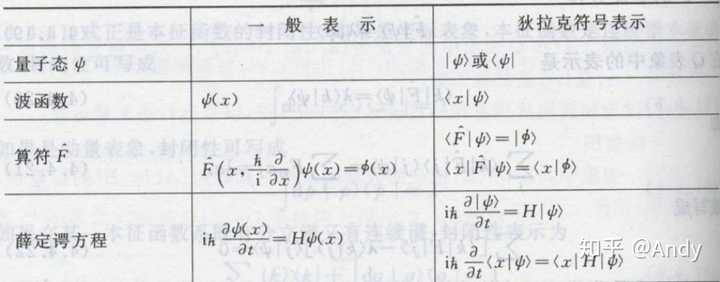 一 般 表 示
狄拉克符号表示
量子态 ψ
|ψ⟩或⟨ψ|
波函数
ψ(x)
⟨x|ψ⟩
算符 F̂
F̂(x, ħ/i ∂/∂x)ψ(x)=ϕ(x)
⟨F̂|ψ⟩=|ϕ⟩
⟨x|F̂|ψ⟩=⟨x|ϕ⟩
薛定谔方程
iħ ∂ψ(x)/∂t=Hψ(x)
iħ ∂|ψ⟩/∂t=H|ψ⟩
iħ ∂/∂t⟨x|ψ⟩=⟨x|H|ψ⟩
知乎 @Andy